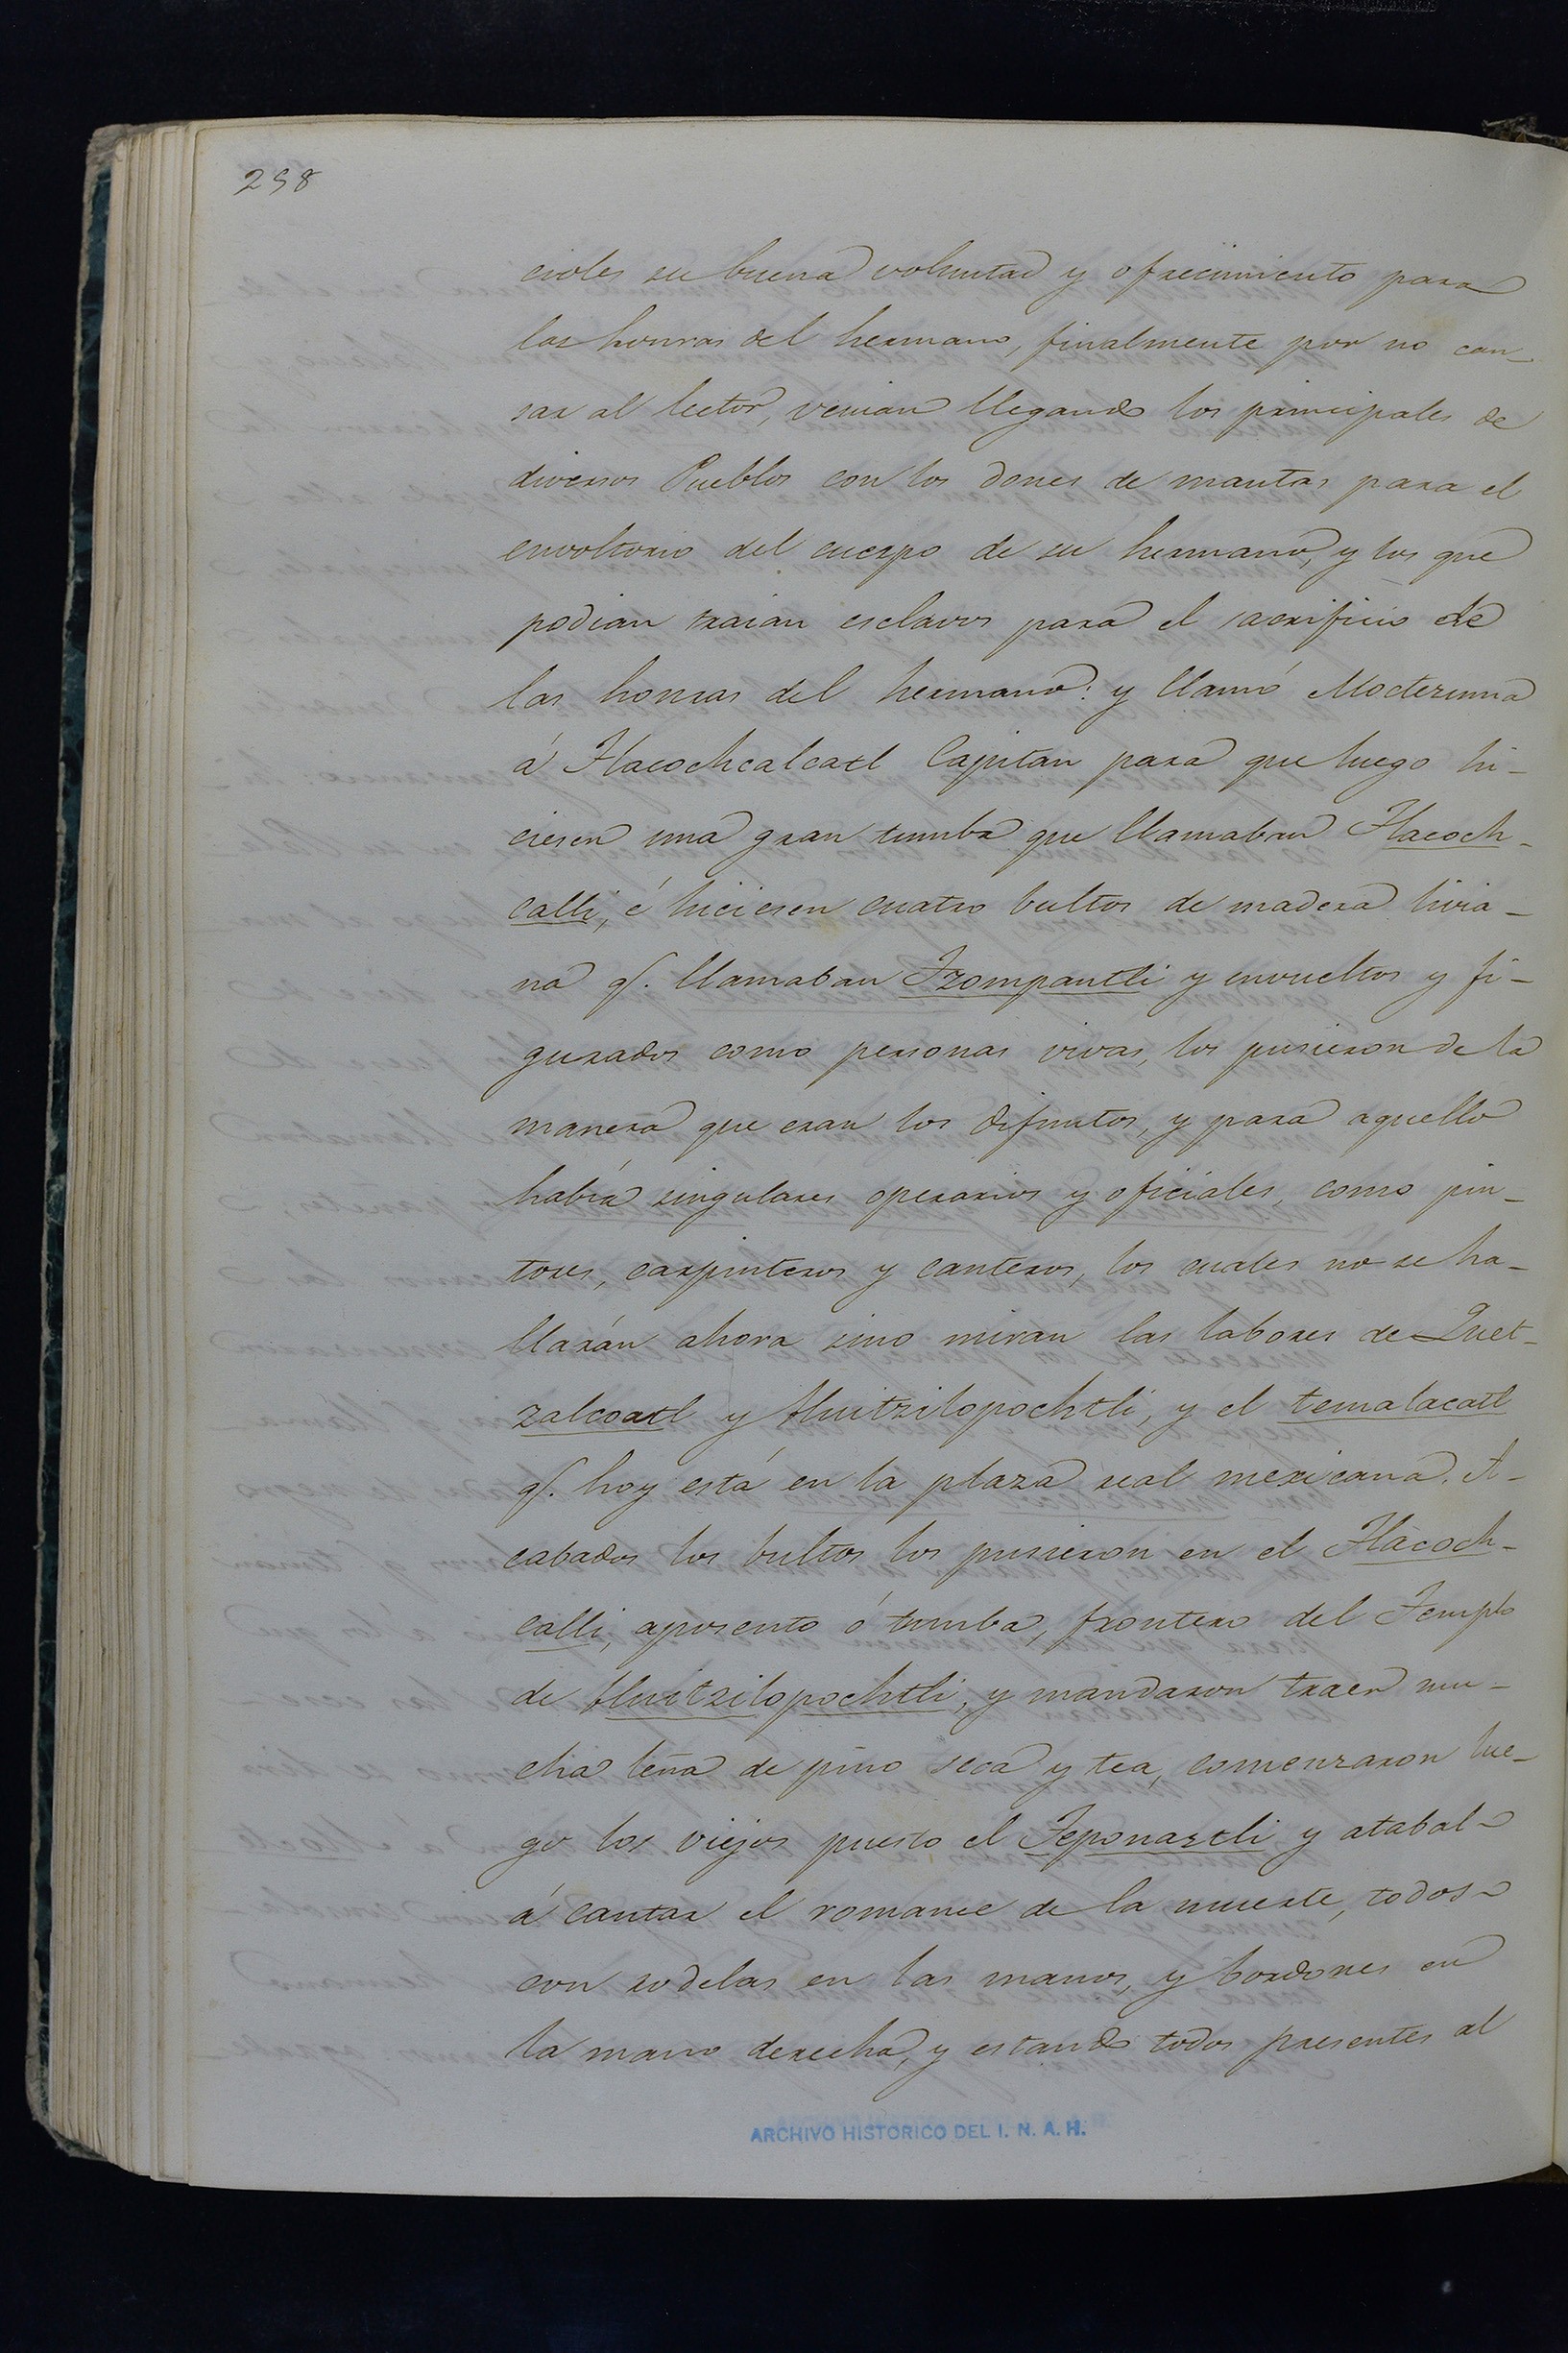 298
cioles su buena voluntad y ofrecimiento para
las honras del hermano, finalmente por no can-
sar al lector, venian llegando los principales de
diversos Pueblos con los dones de mantas para el
envoltorio del cuerpo de su hermano, y los que
podian traian esclavos para el sacrificio de
las honras del hermano: y llamó Moctezuma
á Tlacochcalcatl Capitan para que luego hi-
ciesen una gran tumba que llamaban Tlacoch-
calli, é hiciesen cuatro bultos de madera livia-
na q. llamaban Tzompantli y envueltos y fi-
gurados como personas vivas, los pusieron de la
manera que eran los difuntos, y para aquello
había singulares operarios y oficiales, como pin-
tores, carpinteros y canteros, los cuales no se ha-
llarán ahora sino miran las labores de Quet-
zalcoatl y Huitzilopochtli, y el temalacatl
q. hoy está en la plaza real mexicana. A-
cabados los bultos los pusieron en el Tlacoch-
calli, aposento ó tumba, frontero del Templo
de Huitzilopochtli, y mandaron traer mu-
cha leña de pino seca y tea, comenzaron lue-
go los viejos puesto el Teponaztli y atabal
á cantar el romance de la muerte, todos
con rodelas en las manos, y bordones en
la mano derecha, y estando todos presentes al
ARCHIVO HISTORICO DEL I. N. A. H.